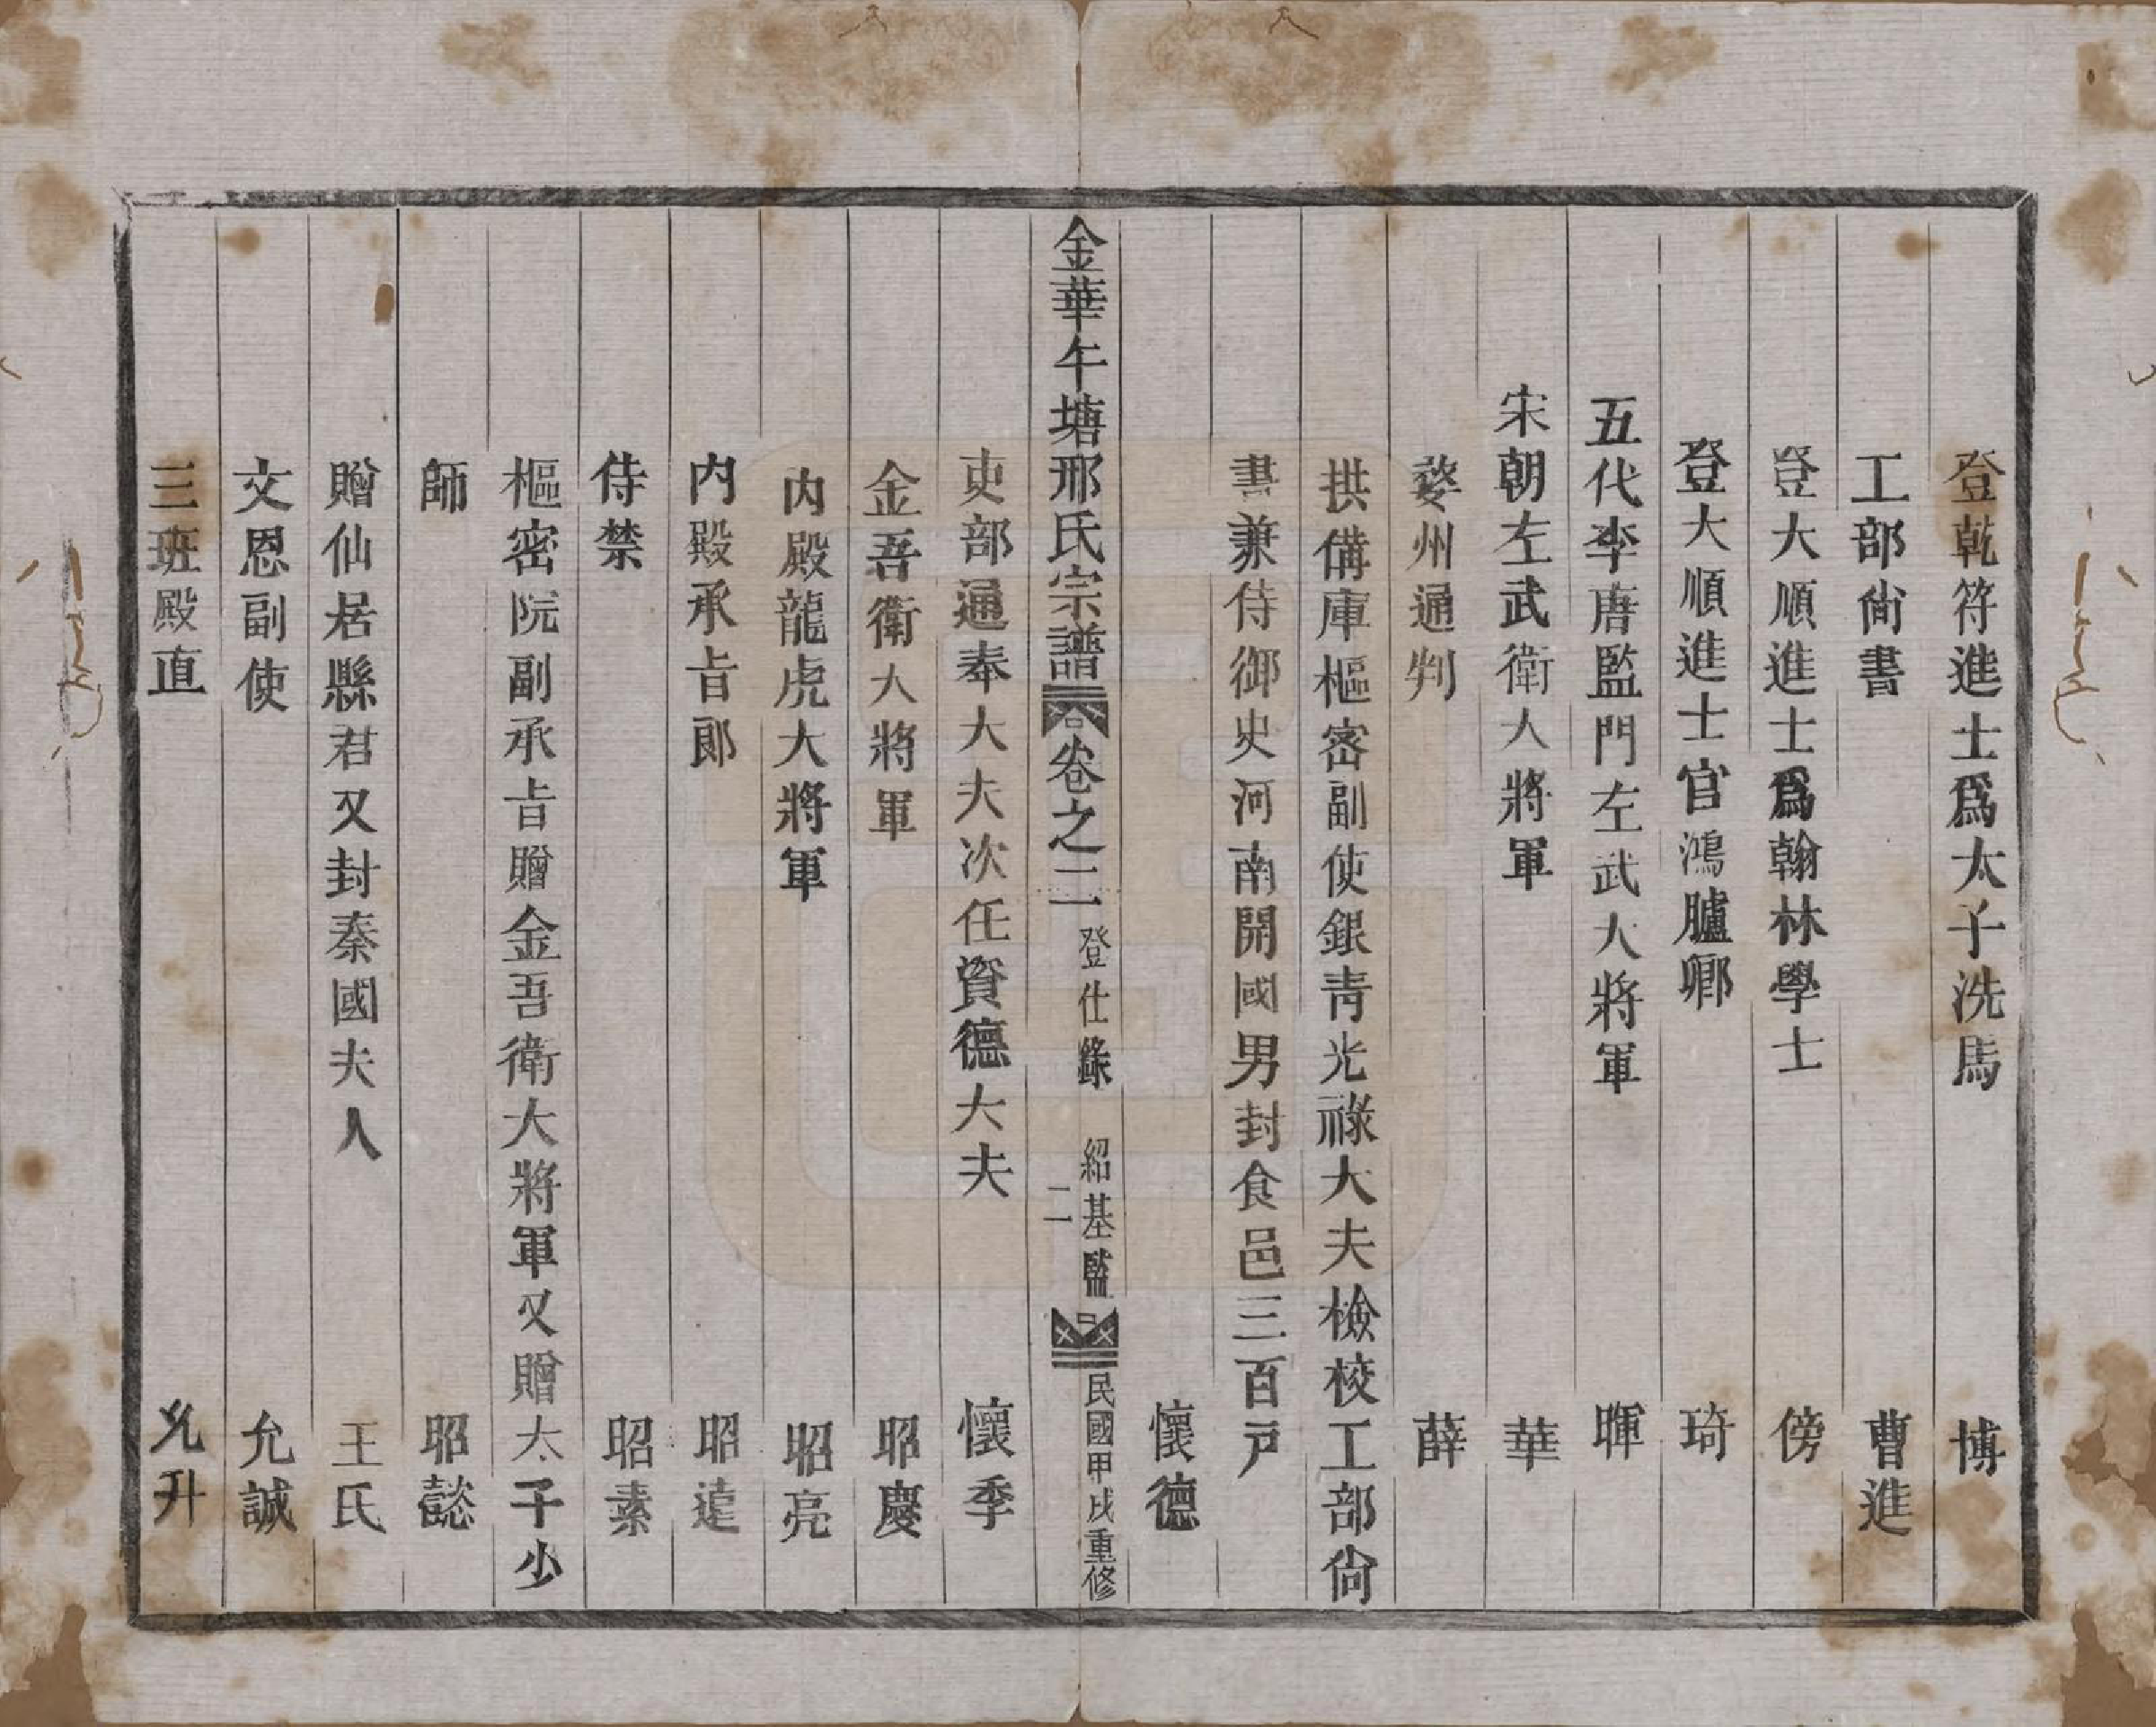 登乾符進士爲太子洗馬 博
工部尙書 曹進
登大順進士爲翰林學士 傍
登大順進士官鴻臚卿 琦
五代李唐監門左武大將軍 暉
宋朝左武衛大將軍 華
婺州通判 薛
拱備庫樞密副使銀靑光祿大夫檢校工部尙
書兼侍御史河南開國男封食邑三百戸
懷德
金華午塘邢氏宗譜 卷之二 登仕錄 二 紹基監 民國甲戌重修
吏部通奉大夫次任資德大夫 懷季
金吾衛大將軍 昭慶
内殿龍虎大將軍 昭亮
内殿承旨郎 昭遠
侍禁 昭素
樞密院副承旨贈金吾衛大將軍又贈太子少
師 昭懿
贈仙居縣君又封秦國夫人 王氏
文恩副使 允誠
三班殿直 允升